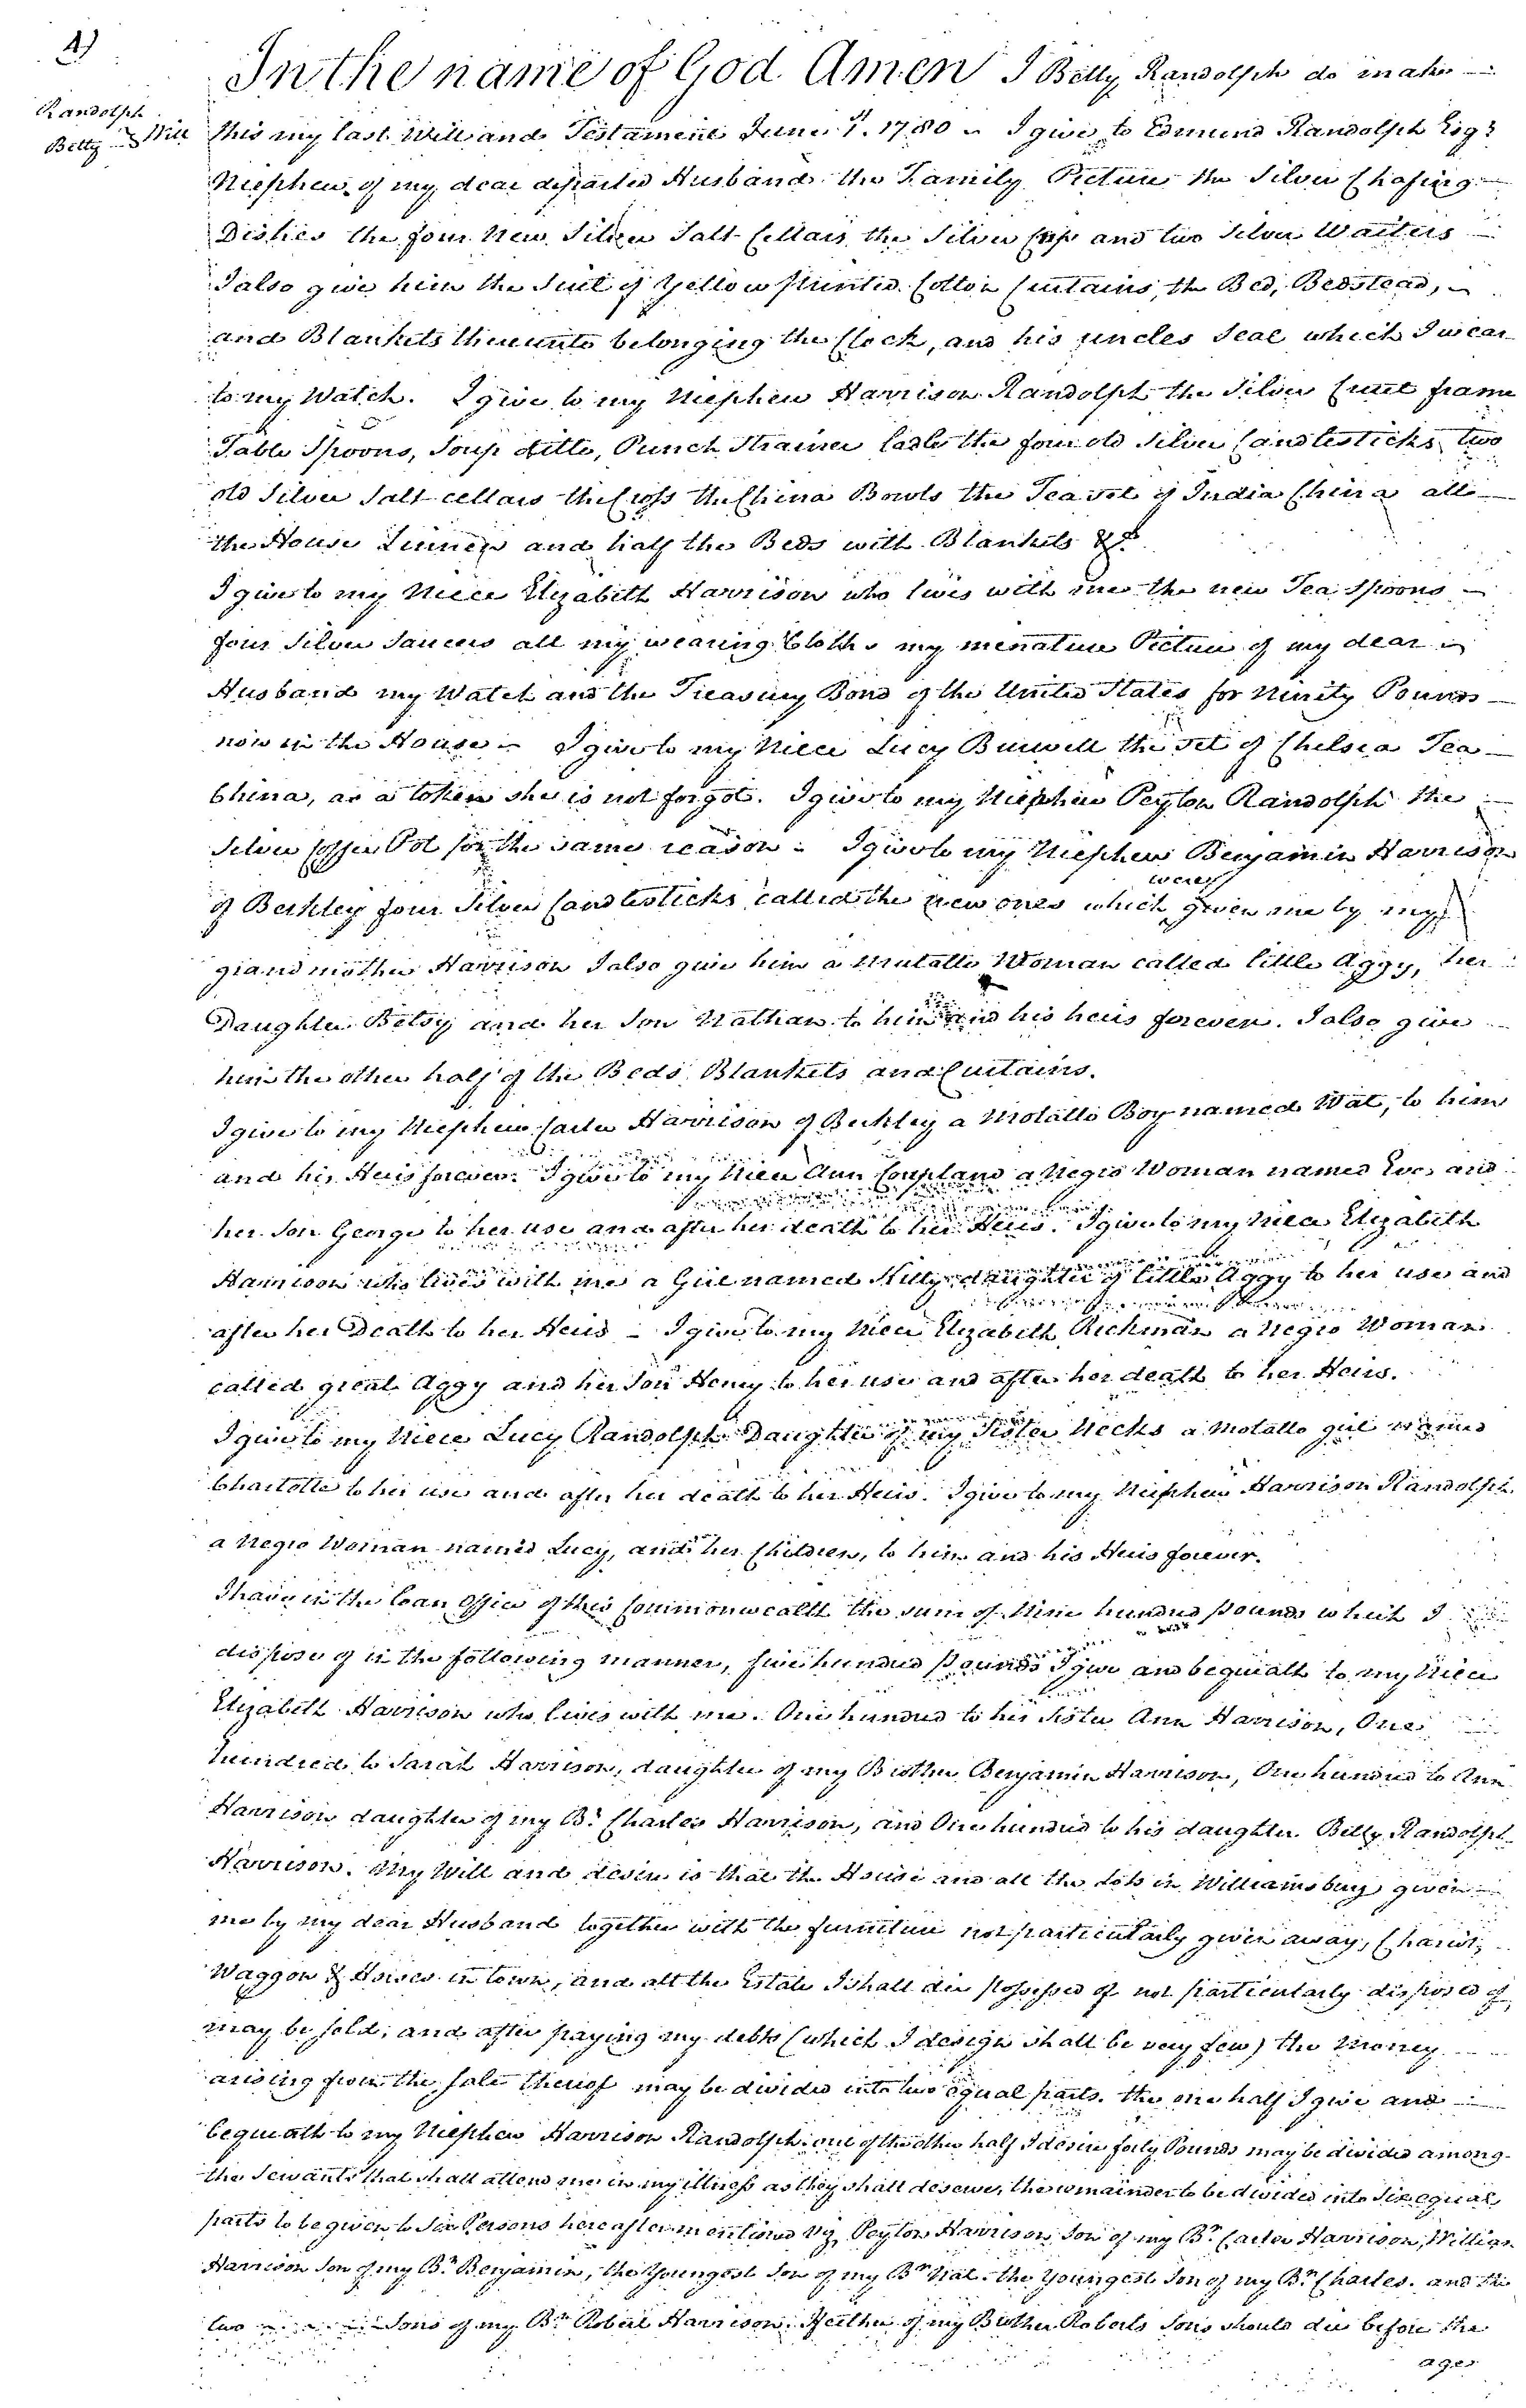 4)
Randolph
Betty } Will
In the name of God Amen I Betty Randolph do make
this my last Will and Testament June 1st. 1780 I give to Edmund Randolph Esqr
Niephew of my dear departed Husband the Family Picture the Silver Chafing
Dishes the four New Silver Salt Cellars the Silver Cup and two Silver Waiters
I also give him the Suit of Yellow printed Cotton Curtains, the Bed, Bedstead,
and Blankets thereunto belonging the Clock, and his uncles Seal which I wear
to my Watch. I give to my Niephew Harrison Randolph the Silver Cruet frame
Table Spoons, Soup ditto, Punch Strainer Ladle the four old Silver Candlesticks two
old Silver Salt cellars the Cross the China Bowls the Tea set of India China all
the House Linnen and half the Beds with Blankets &c.
I give to my Niece Elizabeth Harrison who lives with me the new Tea Spoons
four Silver Saucers all my wearing Cloths my menature Picture of my dear
Husband my Watch and the Treasury Bond of the United States for Ninety Pounds
now in the House I give to my Niece Lucy Burwell the set of Chelsea Tea
China, as a token she is not forgot. I give to my Niephew Peyton Randolph the
Silver Coffee Pot for the same reason I give to my Niephew Benjamin Harrison
of Berkley four Silver Candlesticks called the new ones which were given me by my
grandmother Harrison I also give him a mulatto Woman called little Aggy, her
Daughter Betsy and her Son Nathan to him and his heirs forever. I also give
him the other half of the Beds Blankets and Curtains.
I give to my Niephew Carter Harrison of Berkley a Molatto Boy named Wat, to him
and his Heirs forever. I give to my Niece Ann Coupland a Negro Woman named Eve and
her Son George to her use and after her death to her Heirs. I give to my Niece Elizabeth
Harrison who lives with me a Girl named Kitty daughter of little Aggy to her use and
after her Death to her Heirs I give to my Niece Elizabeth Rickman a Negro Woman
called great Aggy and her Son Henry to her use and after her death to her Heirs.
I give to my Niece Lucy Randolph Daughter of my Sister Necks a Molatto girl named
Charlotte to her use and after her death to her Heirs. I give to my Niephew Harrison Randolph
a Negro Woman named Lucy, and her Children, to him and his Heirs forever.
I have in the loan Office of this Commonwealth the sum of Nine hundred pounds which I
dispose of in the following manner, five hundred pounds I give and bequeath to my Niece
Elizabeth Harrison who lives with me. One hundred to her Sister Ann Harrison, One
hundred to Sarah Harrison, daughter of my Brother Benjamin Harrison, One hundred to Ann
Harrison daughter of my Br. Charles Harrison, and One hundred to his daughter Betty Randolph
Harrison. My Will and desire is that the House and all the Lots in Williamsburg given
me by my dear Husband together with the furniture not particularly given away, Chariot,
Waggon & Horses in town, and all the Estate I shall die possessed of not particularly disposed of,
may be sold, and after paying my debts (which I design shall be very few) the Money
arising from the sale thereof may be divided into two equal parts. the one half I give and
bequeath to my Niephew Harrison Randolph out of the other half I desire forty Pounds may be divided among
the Servants that shall attend me in my illness as they shall deserve, the remainder to be divided into Six equal
parts to be given to Six Persons hereafter mentioned viz. Peyton Harrison, Son of my Br. Carter Harrison, William
Harrison Son of my Br. Benjamin, the Youngest Son of my Br. Nat. the Youngest Son of my Br. Charles. and the
two Sons of my Br. Robert Harrison. If either of my Brother Roberts Sons should die before the
ages